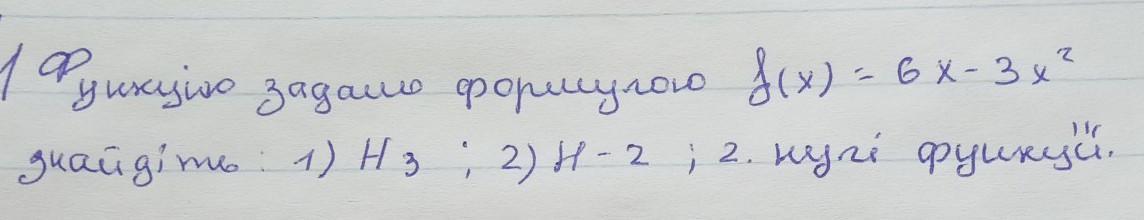 1 Функцію задано формулою f(x) = 6x - 3x²
знайдіть: 1) H3 ; 2) H-2 ; 2. нулі функції.